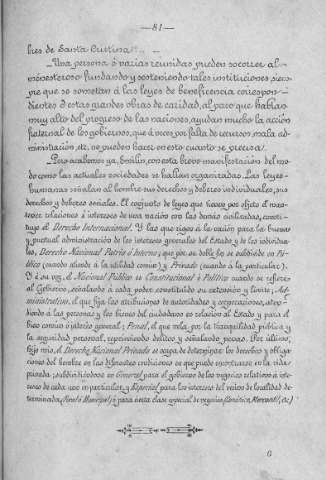 —81—
bres de Santa Cristina
—Una persona ó varias reunidas pueden socorrer al
menesteroso fundando y sosteniendo tales instituciones siem-
pre que se sometan á las leyes de beneficencia correspon-
dientes á estas grandes obras de caridad, al paso que hablan
muy alto del progreso de las naciones, ayudan mucho la acción
fraternal de los gobiernos, que á veces por falta de recursos, mala ad-
ministración, etc., no pueden hacer en esto cuanto se precisa.
Pero acabemos ya, Emilín, con esta breve manifestación del mo-
do como las actuales sociedades se hallan organizadas. Las leyes
humanas señalan al hombre sus derechos y deberes individuales, sus
derechos y deberes sociales. El conjunto de leyes que tienen por objeto el man-
tener relaciones é intereses de una nación con las demás civilizadas, consti-
tuye el Derecho Internacional. Y las que rigen á la nación para la buena
y puntual administración de los intereses generales del Estado y de los individua-
les, Derecho Nacional Patrio ó Interno; que por su doble fin se subdivide en Pú-
blico (cuando atiende á la utilidad común) y Privado (cuando á la particular).
Y á su vez, el Nacional Público es Constitucional ó Político cuando se refiere
al Gobierno, señalando á cada poder constituido su extensión y límite; Ad-
ministrativo, el que fija las atribuciones de autoridades y corporaciones, aten-
diendo á las personas y los bienes del ciudadano en relación al Estado y para el
bien común ó interés general; Penal, el que vela por la tranquilidad pública y
la seguridad personal, reprimiendo delitos y señalando penas. Por último,
hijo mío, el Derecho Nacional Privado se ocupa de determinar los derechos y obliga-
ciones del hombre en las diferentes condiciones en que puede encontrarse en la vida
privada; subdividiéndose en General para el gobierno de los negocios relativos á inte-
reses de cada uno en particular, y Especial para los intereses del vecino de localidad de-
terminada (Foral ó Municipal) ó para cierta clase especial de negocios (Canónico, Mercantil, etc.)
6